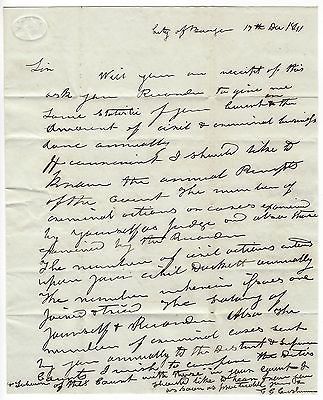 City of Bangor 17th Dec
Sir Will you on receipt of this
ask your Recorder to give me an
some Statistic of your Court & the
amount of civil & criminal business
done annually
If convenient I should like to
know the annual Receipts
of the Court The number of
criminal actions or cases examined
by yourself as judge and also those
examined by the Recorder
The number of civil actions entered
upon your civil Docket annually
The number wherein issues are
joined & tried The salary of
yourself & Recorder Also the
number of criminal cases sent
by you annually to the District & Supreme
Courts I wish to compare the duties
of this Court with those in your Court & I
should like to hear from you
as soon as practicable